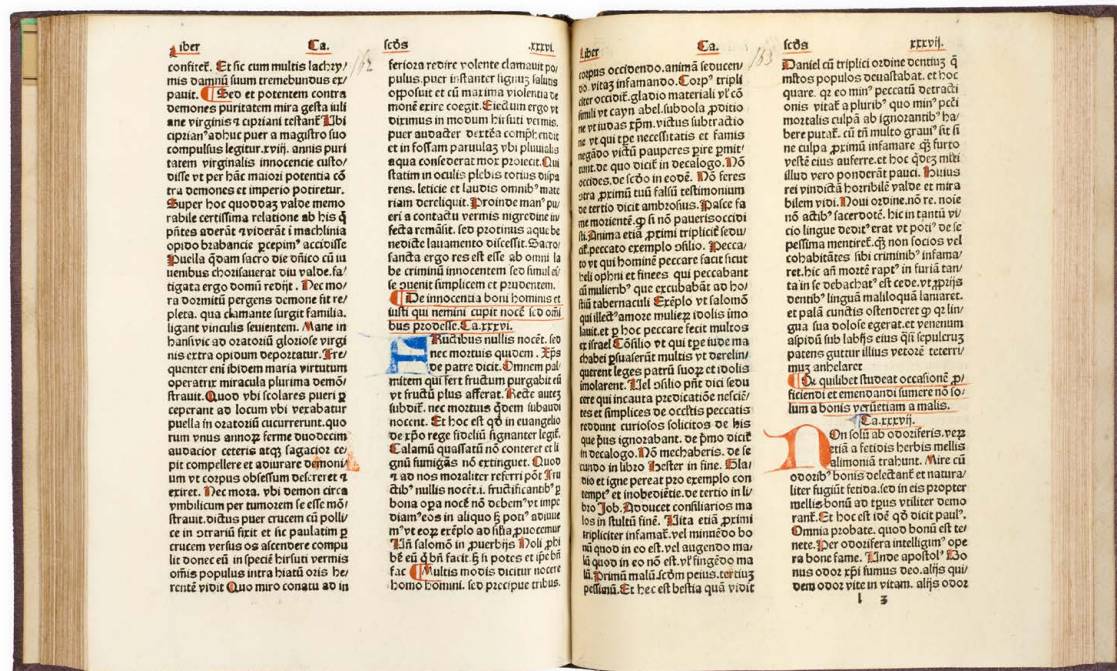 Liber Ca. scd̄s .xxxvi.
confitet̄. Et sic cum multis lachry/
mis damnū suum tremebundus ex/
pauit. Sed et potentem contra
demones puritatem mira gesta iuli
ane virginis ⁊ cipriani testant̄ Ubi
ciprianꝰ adhuc puer a magistro suo
compulsus legitur .xviij. annis puri
tatem virginalis innocencie custo/
disse vt per hāc maiori potentia cō
tra demones et imperio potiretur.
Super hoc quoddaʒ valde memo
rabile certissima relatione ab his q̄
pn̄tes aderāt ⁊ viderāt i machlinia
opido brabancie ꝑcepimꝰ accidisse
Puella q̄dam sacro die dn̄ico cū iu
uenibus chorisauerat diu valde. fa/
tigata ergo domū redijt. Nec mo/
ra dormitū pergens demone fit re/
pleta. qua clamante surgit familia.
ligant vinculis seuientem. Mane in
hansivic ad oratoriū gloriose virgi
nis extra opidum deportatur. Fre/
quenter eni ibidem maria virtutum
operatrix miracula plurima demō/
strauit. Quod vbi scolares pueri ꝑ
ceperant ad locum vbi vexabatur
puella in oratoriū cucurrerunt. quo
rum vnus annoꝝ ferme duodecim
audacior ceteris atqꝫ sagacior ce/
pit compellere et adiurare demoni/
um vt corpus obsessum desereret ⁊
exiret. Nec mora. vbi demon circa
vmbilicum per tumorem se esse mō/
strauit. dictus puer crucem cū polli/
ce in ꝯtrariū fixit et sic paulatim ꝑ
crucem versus os ascendere compu
lit donec eū in specie hirsuti vermis
om̄is populus intra hiatū oris he/
rentē vidit Quo miro conatu ad in
feriora redire volente clamauit po/
pulus. puer instanter lignuʒ salutis
opposuit et cū maxima violentia de
monē exire coegit. Eiectum ergo vt
diximus in modum hirsuti vermis.
puer audacter dextēa comp̄hendit
et in fossam paruulaʒ vbi pluuialis
aqua consederat mox proiecit. Qui
statim in oculis plebis totius dispa
rens. leticie et laudis omnibꝰ mate
riam dereliquit. Proinde manꝰ pu/
eri a contactu vermis nigredine in/
fecta remāsit. sed protinus aque be
nedicte lauamento discessit. Sacro/
sancta ergo res est esse ab omni la
be criminū innocentem sed simul es/
se ꝯuenit simplicem et prudentem.
De innocentia boni hominis et
iusti qui nemini cupit nocē sed om̄i
bus prodesse. Ca.xxxvi.
Ructibus nullis nocēt. sed
nec mortuis quidem. Xp̄s
de patre dicit. Omnem pal/
mitem qui fert fructum purgabit eū
vt fructū plus afferat. Recte auteʒ
subdit̄. nec mortuis q̄dem subaudi
nocent. Et hoc est qd̄ in euangelio
de xp̄o rege fideliū signanter legit̄.
Calamū quassatū nō conteret et li
gnū fumigās nō extinguet. Quod
⁊ ad nos moraliter referri pōt Fru
ctibꝰ nullis nocēt. i. fructificantibꝰ ꝑ
bona oꝑa nocē nō debemꝰ vt impe
diamꝰ eos in aliquo sꝫ potiꝰ adiuue
mꝰ vt eoꝝ exēplo ad silia ꝓuocemur
Un̄ salomō in ꝓuerbijs Noli ꝓhi
bē eū q̄ bn̄ facit. sꝫ si potes et ip̄e bn̄
fac Multis modis dicitur nocere
homo homini. sed precipue tribus.
162
Liber Ca. scd̄s xxxvij.
corpus occidendo. animā seducen/
do. vitaʒ infamando. Corpꝰ tripli
citer occidit̄. gladio materiali vl̓ cō
simili vt cayn abel. subdola ꝓditio
ne vt iudas xp̄m. victus subtractio
ne vt qui tp̄e necessitatis et famis
negādo victū pauperes ꝑire ꝑmit/
tunt. de quo dicit̄ in decalogo. Nō
occides. de scd̄o in eodē. Nō feres
ꝯtra ꝓximū tuū falsū testimonium
de tertio dicit ambrosius. Pasce fa
me morientē. ꝙ si nō paueris occidi
sti. Anima etiā ꝓximi triplicit̄ sedu/
cit̄. peccato exemplo ꝯsilio. Pecca/
to vt qui hominē peccare facit sicut
heli ophni et finees qui peccabant
cū mulieribꝰ que excubabāt ad ho/
stiū tabernaculi Exēplo vt salomō
qui illectꝰ amore mulieꝝ idolis imo
lauit. et ꝑ hoc peccare fecit multos
ex israel Cōsilio vt qui tp̄e iude ma
chabei ꝑsuaserūt multis vt derelin/
querent leges patrū suoꝝ et idolis
imolarent. Uel ꝯsilio pn̄t dici sedu
cere qui incauta predicatiōe nesciē/
tes et simplices de occl̓tis peccatis
reddunt curiosos solicitos de his
que p̄us ignorabant. de p̄mo dicit̄
in decalogo. Nō mechaberis. de se
cundo in libro Hester in fine. Gla/
dio et igne pereat pro exemplo con
temptꝰ et inobediētie. de tertio in li/
bro Job. Adducet consiliarios ma
los in stultū finē. Uita etiā ꝓximi
tripliciter infamat̄. vel minuēdo bo
nū quod in eo est. vel augendo ma/
lū quod in eo nō est. vel̓ fingēdo ma
lū. Primū malū. scd̄m peius. tertiuʒ
pessimū. Et hec est bestia quā vidit
Daniel cū triplici ordine dentiuʒ q̄
ml̓tos populos deuastabat. et hoc
quare. qꝛ eo minꝰ peccatū detracti
onis vitat̄ a pluribꝰ quo minꝰ pctī
mortalis culpā ab ignorantibꝰ ha/
bere putat̄. cū tn̄ multo grauiꝰ sit si
ne culpa ꝓximū infamare qꝫ furto
vestē eius auferre. et hoc q̄deʒ mihi
illud vero ponderāt pauci. Huius
rei vindictā horribilē valde et mira
bilem vidi. Noui ordine. nō re. noie
nō actibꝰ sacerdotē. hic in tantū vi/
cio lingue deditꝰ erat vt potiꝰ de se
pessima mentiret̄. qꝫ non socios vel
cohabitātes sibi criminibꝰ infama/
ret. hic an̄ mortē raptꝰ in furiā tan/
ta in se debachatꝰ est cede. vt ꝓprijs
dentibꝰ linguā maliloquā laniaret.
et palā cunctis ostenderet ꝙ ꝑ lin/
gua sua dolose egerat. et venenum
aspidū sub labijs eius q̄si sepulcruʒ
patens guttur illius vetorē teterri/
muʒ anhelaret
Ꝙ quilibet studeat occasionē ꝓ/
ficiendi et emendandi sumere nō so/
lum a bonis veruetiam a malis.
Ca.xxxvij.
NOn solū ab odoriferis. veꝝ
etiā a fetidis herbis mellis
alimoniā trahunt. Mire cū
odoribꝰ bonis delectant̄ et natura/
liter fugiūt fetida. sed in eis propter
mellis bonū ad tp̄us vtiliter demo
rant̄. Et hoc est idē qd̄ dicit paulꝰ.
Omnia probate. quod bonū est te/
nete. Per odorifera intelligimꝰ oꝑe
ra bone fame. Unde apostolꝰ Bo
nus odor xp̄i sumus deo. alijs qui/
dem odor vite in vitam. alijs odor
l 3
163